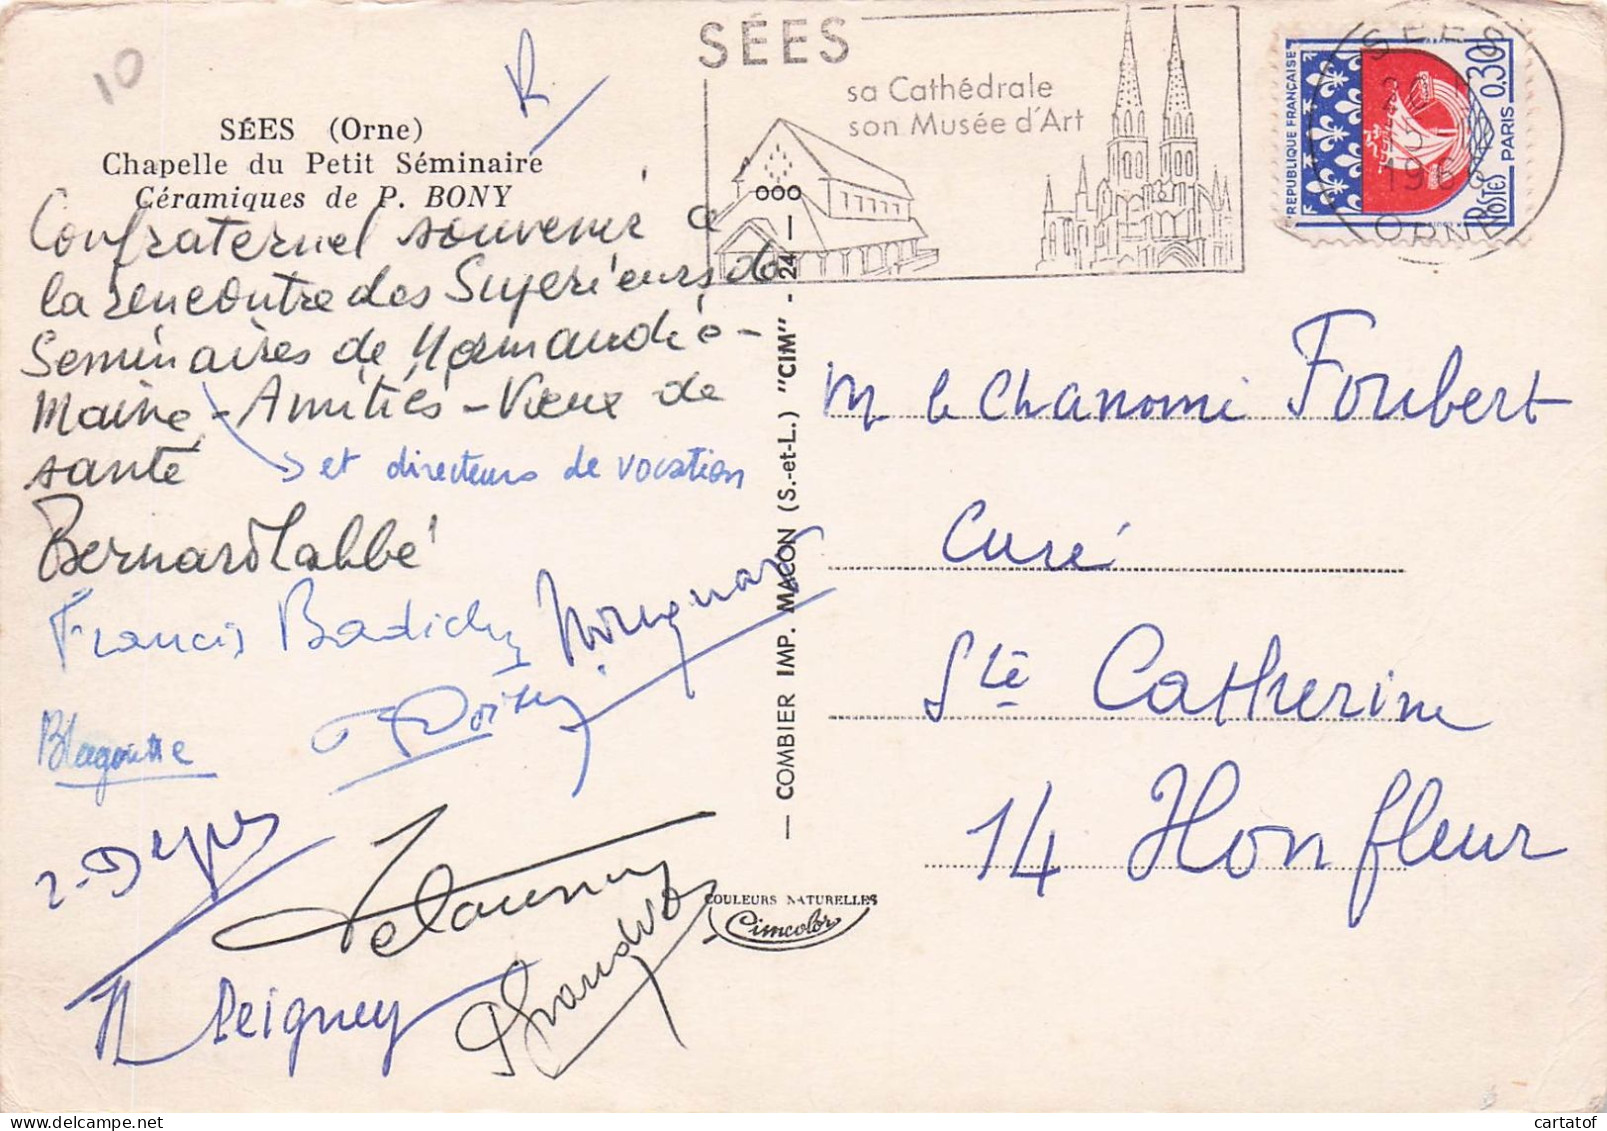 10
R.
SÉES (Orne)
Chapelle du Petit Séminaire
Céramiques de P. BONY
Confraternel souvenir à
la rencontre des Superieurs de
Seminaires de Normandie-
Maine - Amitiés - Vœux de
santé
et directeurs de vocation
Bernard Labbé
Francis Badichy
Blagoutte
Delaunay
Seigney
SÉES
sa Cathédrale
son Musée d'Art
SÉES
20
5
196
ORNE
REPUBLIQUE FRANÇAISE
0,30
POSTES
PARIS
— COMBIER IMP. MACON (S.-et-L.) "CIM" - 24 —
COULEURS NATURELLES
Cimcolor
M. le Chanoine Foubert
Curé
Ste Catherine
14 Honfleur
cartatof